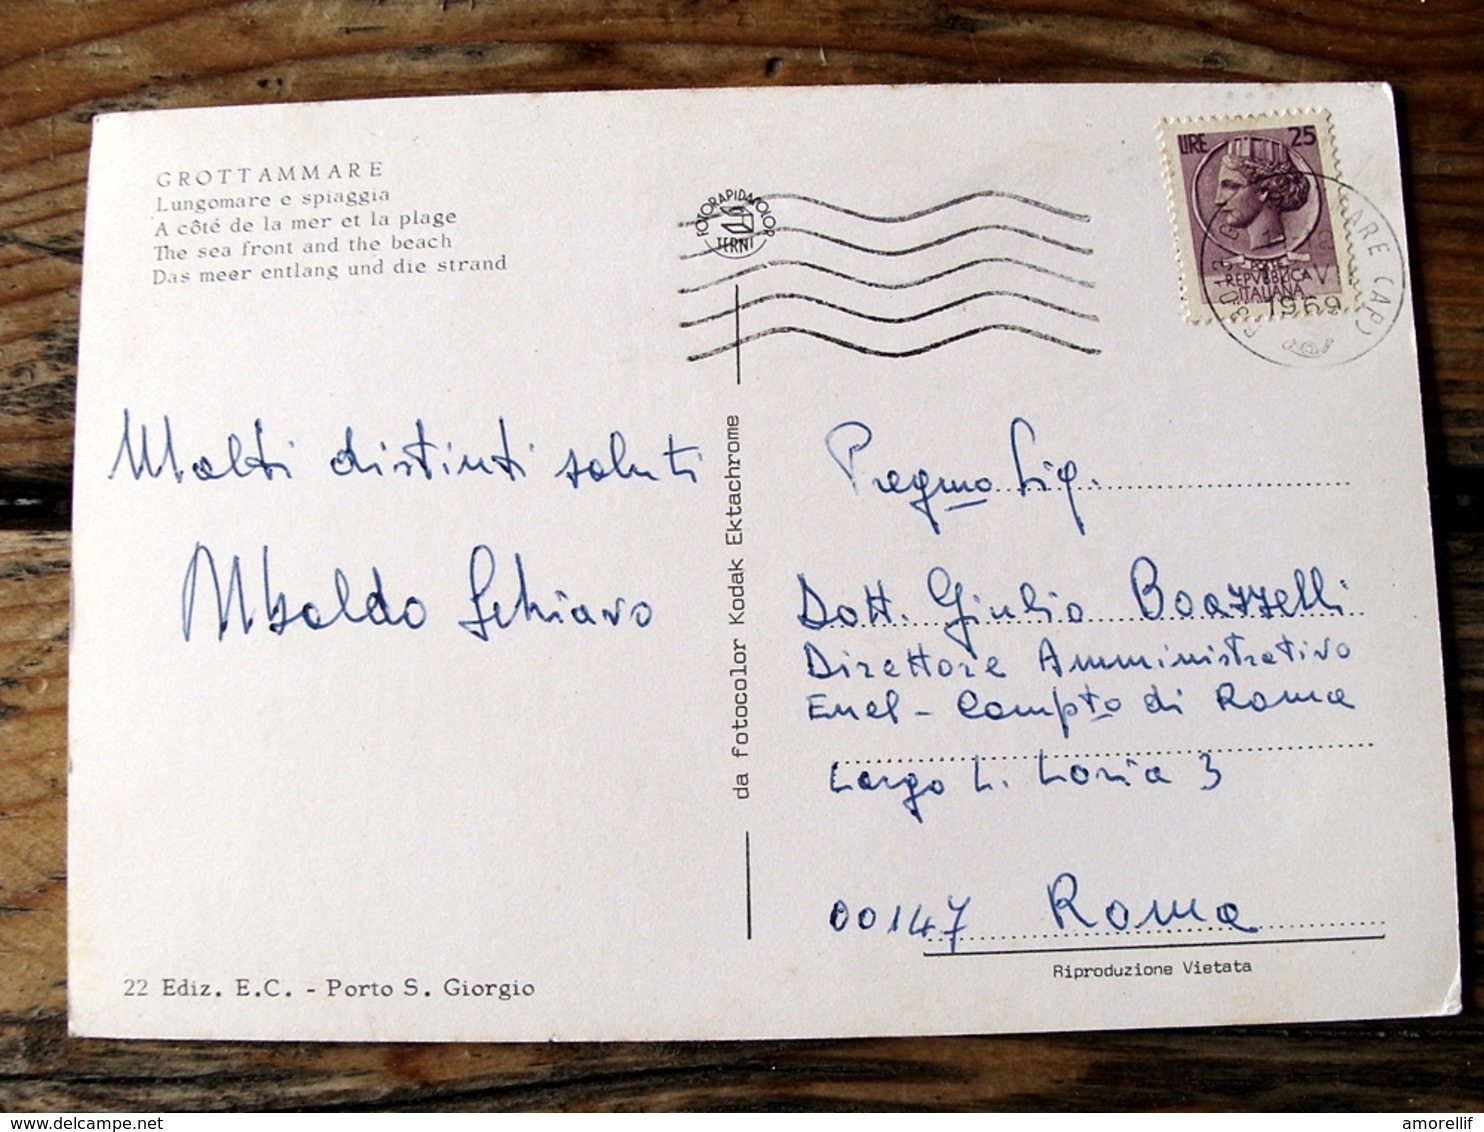 GROTTAMMARE
Lungomare e spiaggia
A côté de la mer et la plage
The sea front and the beach
Das meer entlang und die strand
FOTORAPIDACOLOR
TERNI
LIRE 25
POSTE
REPVBBLICA
ITALIANA
ARE (AP)
1969
Molti distinti saluti
Ubaldo Schiavo
da fotocolor Kodak Ektachrome
Pregmo Sig.
Dott. Giulio Boazzelli
Direttore Amministrativo
Enel - Compto di Roma
Largo L. Loria 3
00147 Roma
Riproduzione Vietata
22 Ediz. E.C. - Porto S. Giorgio
amorellif